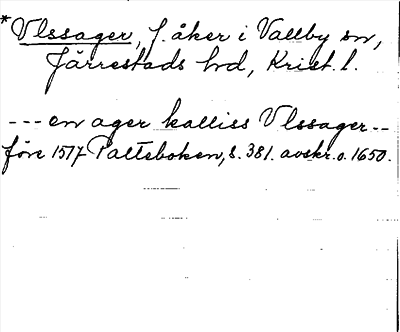 *Vlssager, f. åker i Vallby sn,
Järrestads hd, Krist. l.
--- en ager kalliss Vlssager --
före 1517 Palteboken, s. 381. avskr. o. 1650.